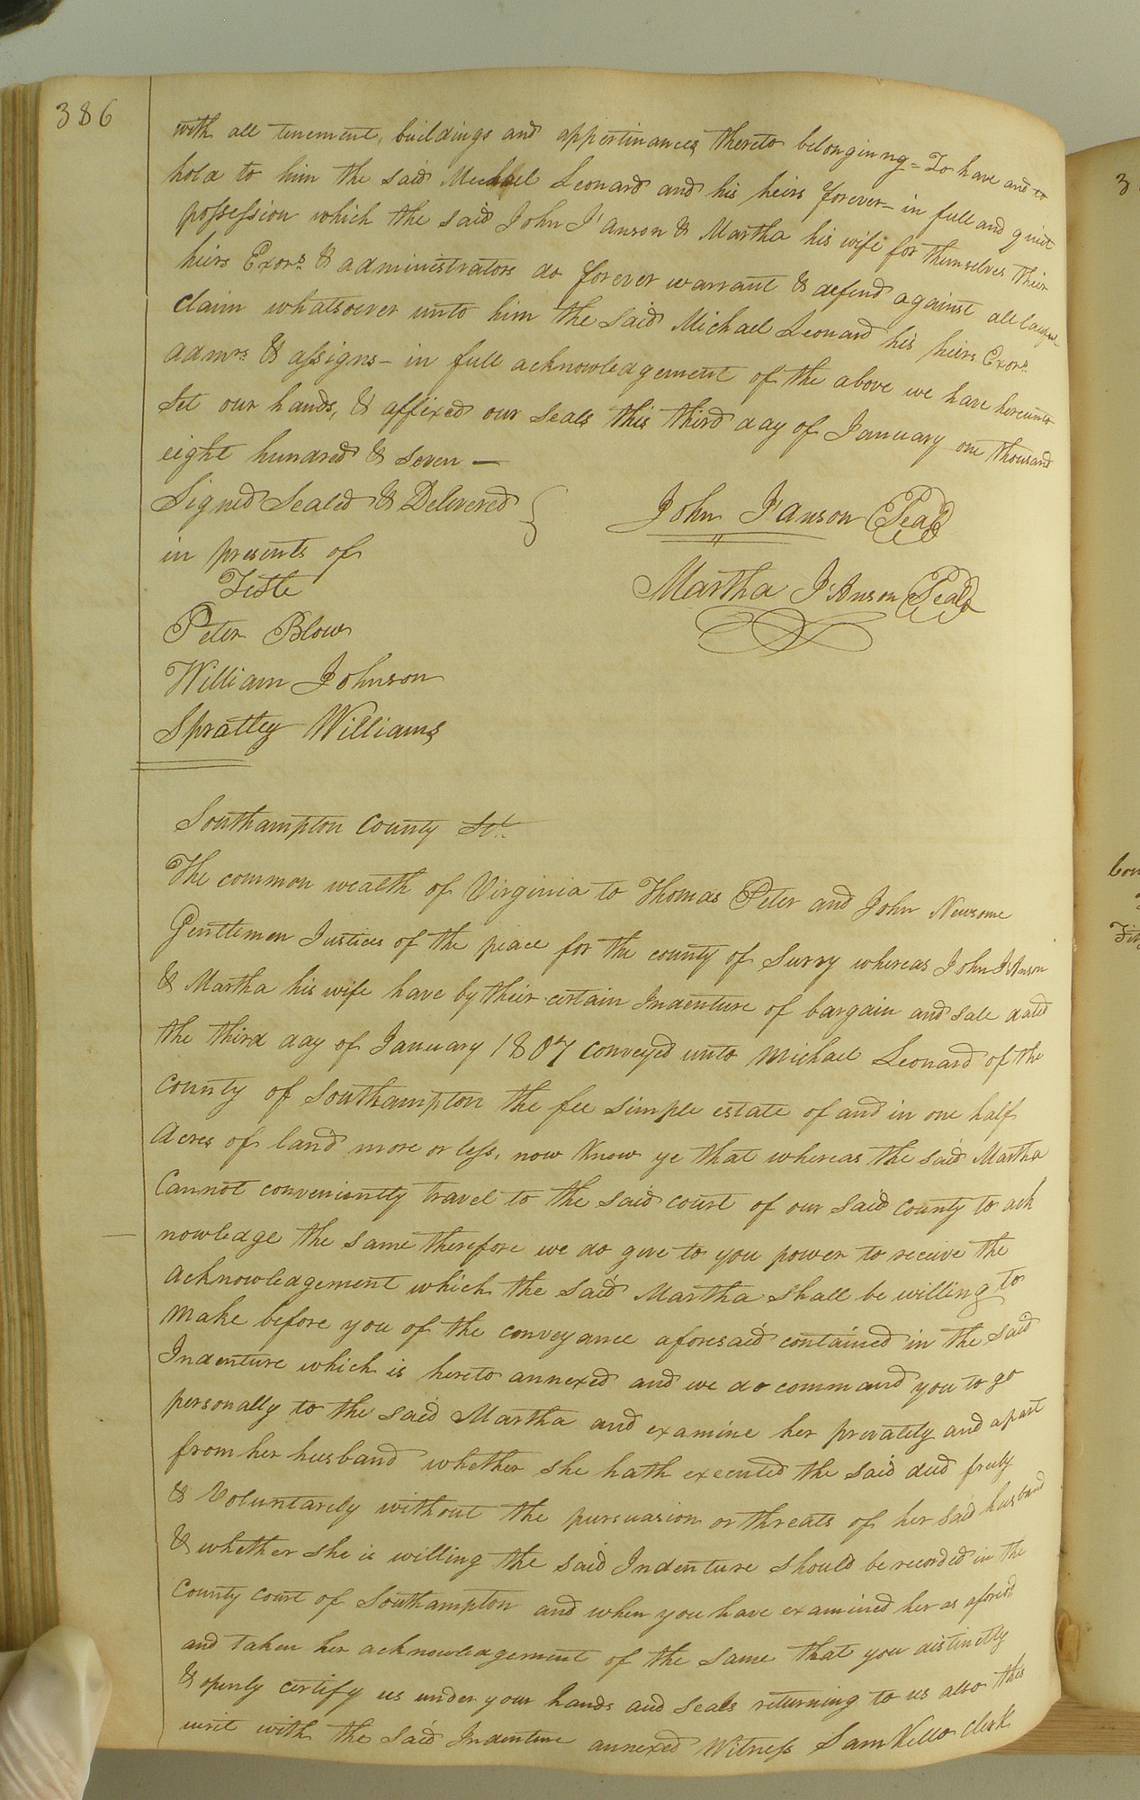 386
with all tenement, buildings and appertinances thereto belonginng = To have and to
hold to him the said Michael Leonard and his heirs forever - in full and quiet
possession which the said John I'anson & Martha his wife for themselves their
heirs Exors. & administrators do forever warrant & defend against all lawful
claim whatsoever unto him the said Michael Leonard his heirs Exors.
admrs & assigns - in full acknowledgement of the above we have hereunto
Set our hands, & affixed our seals this third day of January one thousand
eight hundred & seven —
Signed Sealed & Delivered }
in presents of
Teste
John I'anson Seal
Martha I'Anson Seal
Peter Blow
William Johnson
Spratley Williams
Southampton County Sct.
The common wealth of Virginia to Thomas Peter and John Newsome
Gentlemen Justices of the peace for the county of Surry whereas John I'Anson
& Martha his wife have by their certain Indenture of bargain and sale dated
the third day of January 1807 conveyed unto Michael Leonard of the
county of Southampton the fee simple estate of and in one half
Acres of land more or less, now Know ye that whereas the said Martha
Cannot conveniently travel to the said court of our said County to ack
nowledge the same therefore we do give to you power to receive the
acknowledgement which the said Martha shall be willing to
make before you of the conveyance aforesaid contained in the said
Indenture which is hereto annexed and we do command you to go
personally to the said Martha and examine her privately and apart
from her husband whether she hath executed the said deed freely
& Voluntarely without the pursuasion or threats of her said husband
& whether she is willing the said Indenture should be recorded in the
County Court of Southampton and when you have examined her as aforesd
and taken her acknowledgement of the same that you distinctly
& openly certify us under your hands and seals returning to us also this
writ with the said Indenture annexed Witness Sam Kello Clerk